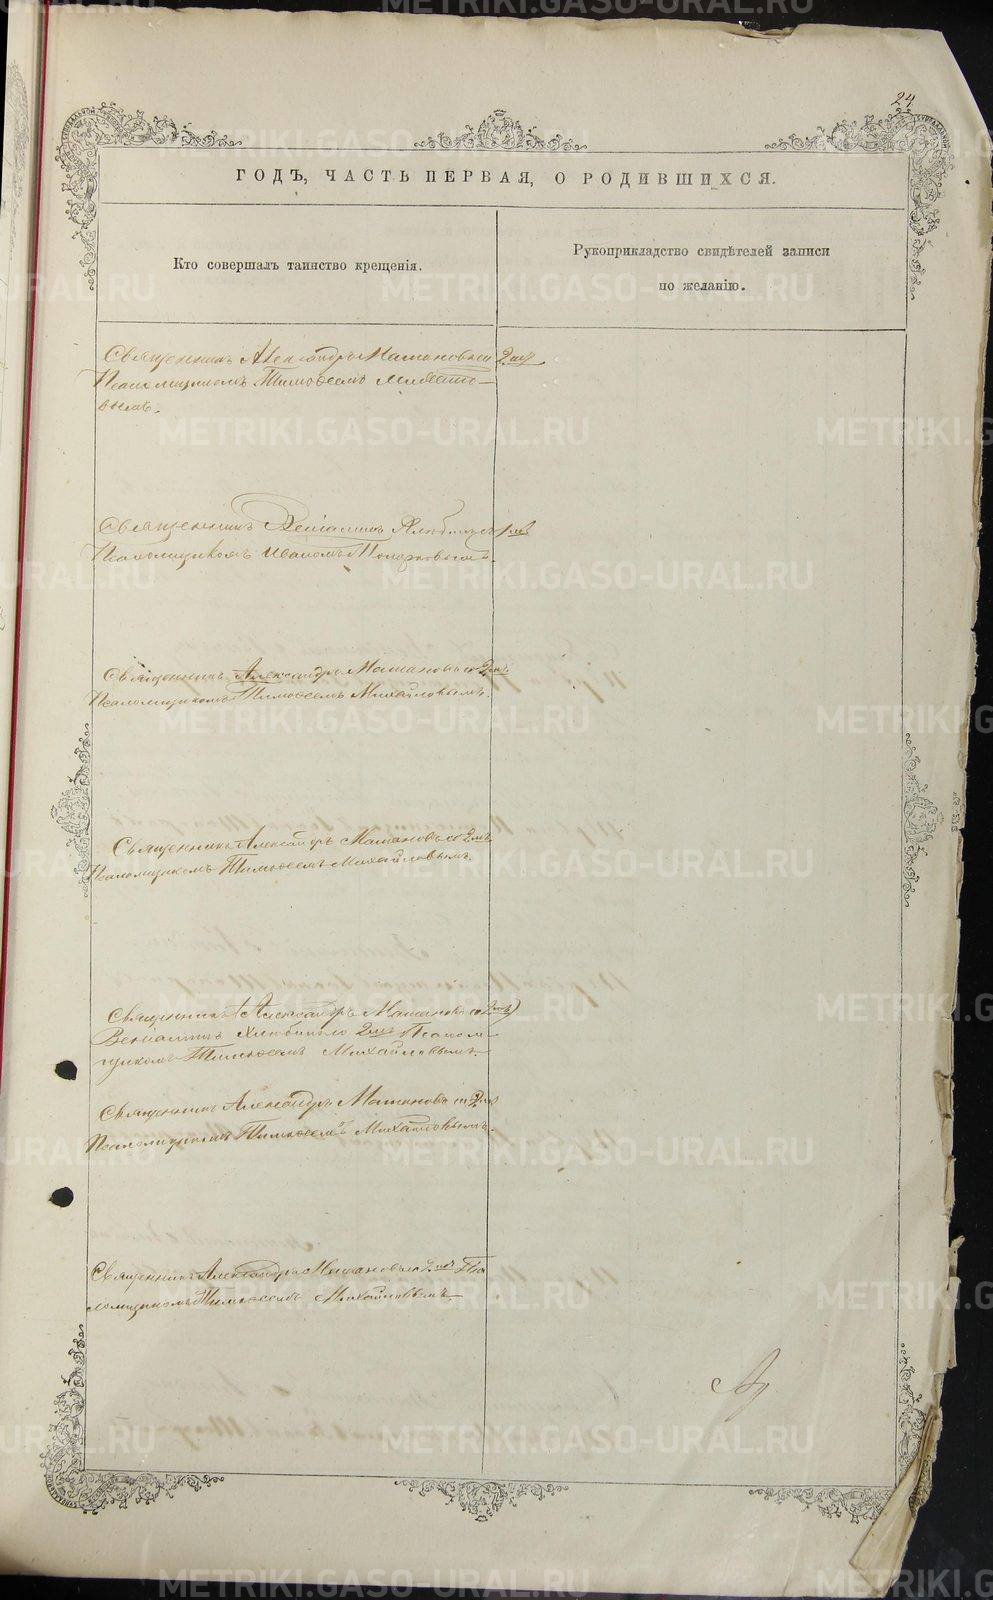 24
ГОДЪ, ЧАСТЬ ПЕРВАЯ, О РОДИВШИХСЯ.
Кто совершалъ таинство крещенія.
Рукоприкладство свидѣтелей записи
по желанію.
Священникъ Александръ
Псаломщикомъ Тимофеемъ
вымъ.
Священникъ Веніаминъ
Псаломщикомъ Иваномъ
Священникъ Александръ Мамановъ со
Псаломщикомъ Тимофеемъ Михайловымъ.
Священникъ Александръ Мамановъ со
Псаломщикомъ Тимофеемъ Михайловымъ.
Священникъ Александръ Мамановъ со
Веніаминъ Псалом-
щикомъ Тимофеемъ Михайловымъ.
Священникъ Александръ Мамановъ со
Псаломщикомъ Тимофеемъ Михайловымъ.
Священникъ Александръ Мамановъ со Пса
ломщикомъ Тимофеемъ Михайловымъ.
METRIKI.GASO-URAL.RU